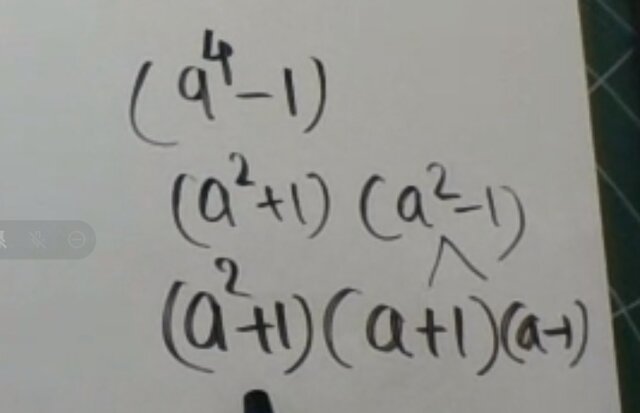 (a⁴-1)
(a²+1) (a²-1)
(a²+1)(a+1)(a-1)